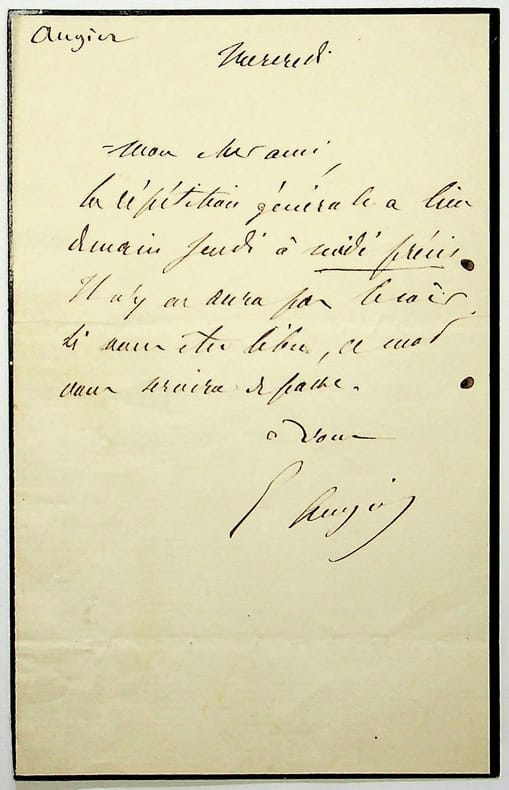 Augier
Mercredi
Mon cher ami,
la répétition générale a lieu
demain Jeudi à midi précis.
Il n'y en aura pas le soir.
Si vous êtes libre, ce mot
vous servira de passe.
à vous
E Augier